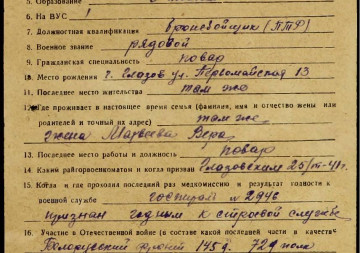 5. Образование
6. На ВУС
7. Должностная квалификация бронебойщик (ПТР)
8. Военное звание рядовой
9. Гражданская специальность повар
10. Место рождения г. Глазов ул. Первомайская 13
11. Последнее место жительства там же
12. Где проживает в настоящее время семья (фамилия, имя и отчество жены или
родителей и точный их адрес) там же
жена Матвеева Вера
13. Последнее место работы и должность повар
14. Каким райгорвоенкоматом и когда призван Глазовским 25/VII-41г.
15. Когда и где проходил последний раз медкомиссию и результат годности к
военной службе госпиталь № 2946
признан годным к строевой службе
16. Участие в Отечественной войне (в составе какой последней части и качестве
Белорусский фронт 145 д. 729 полк